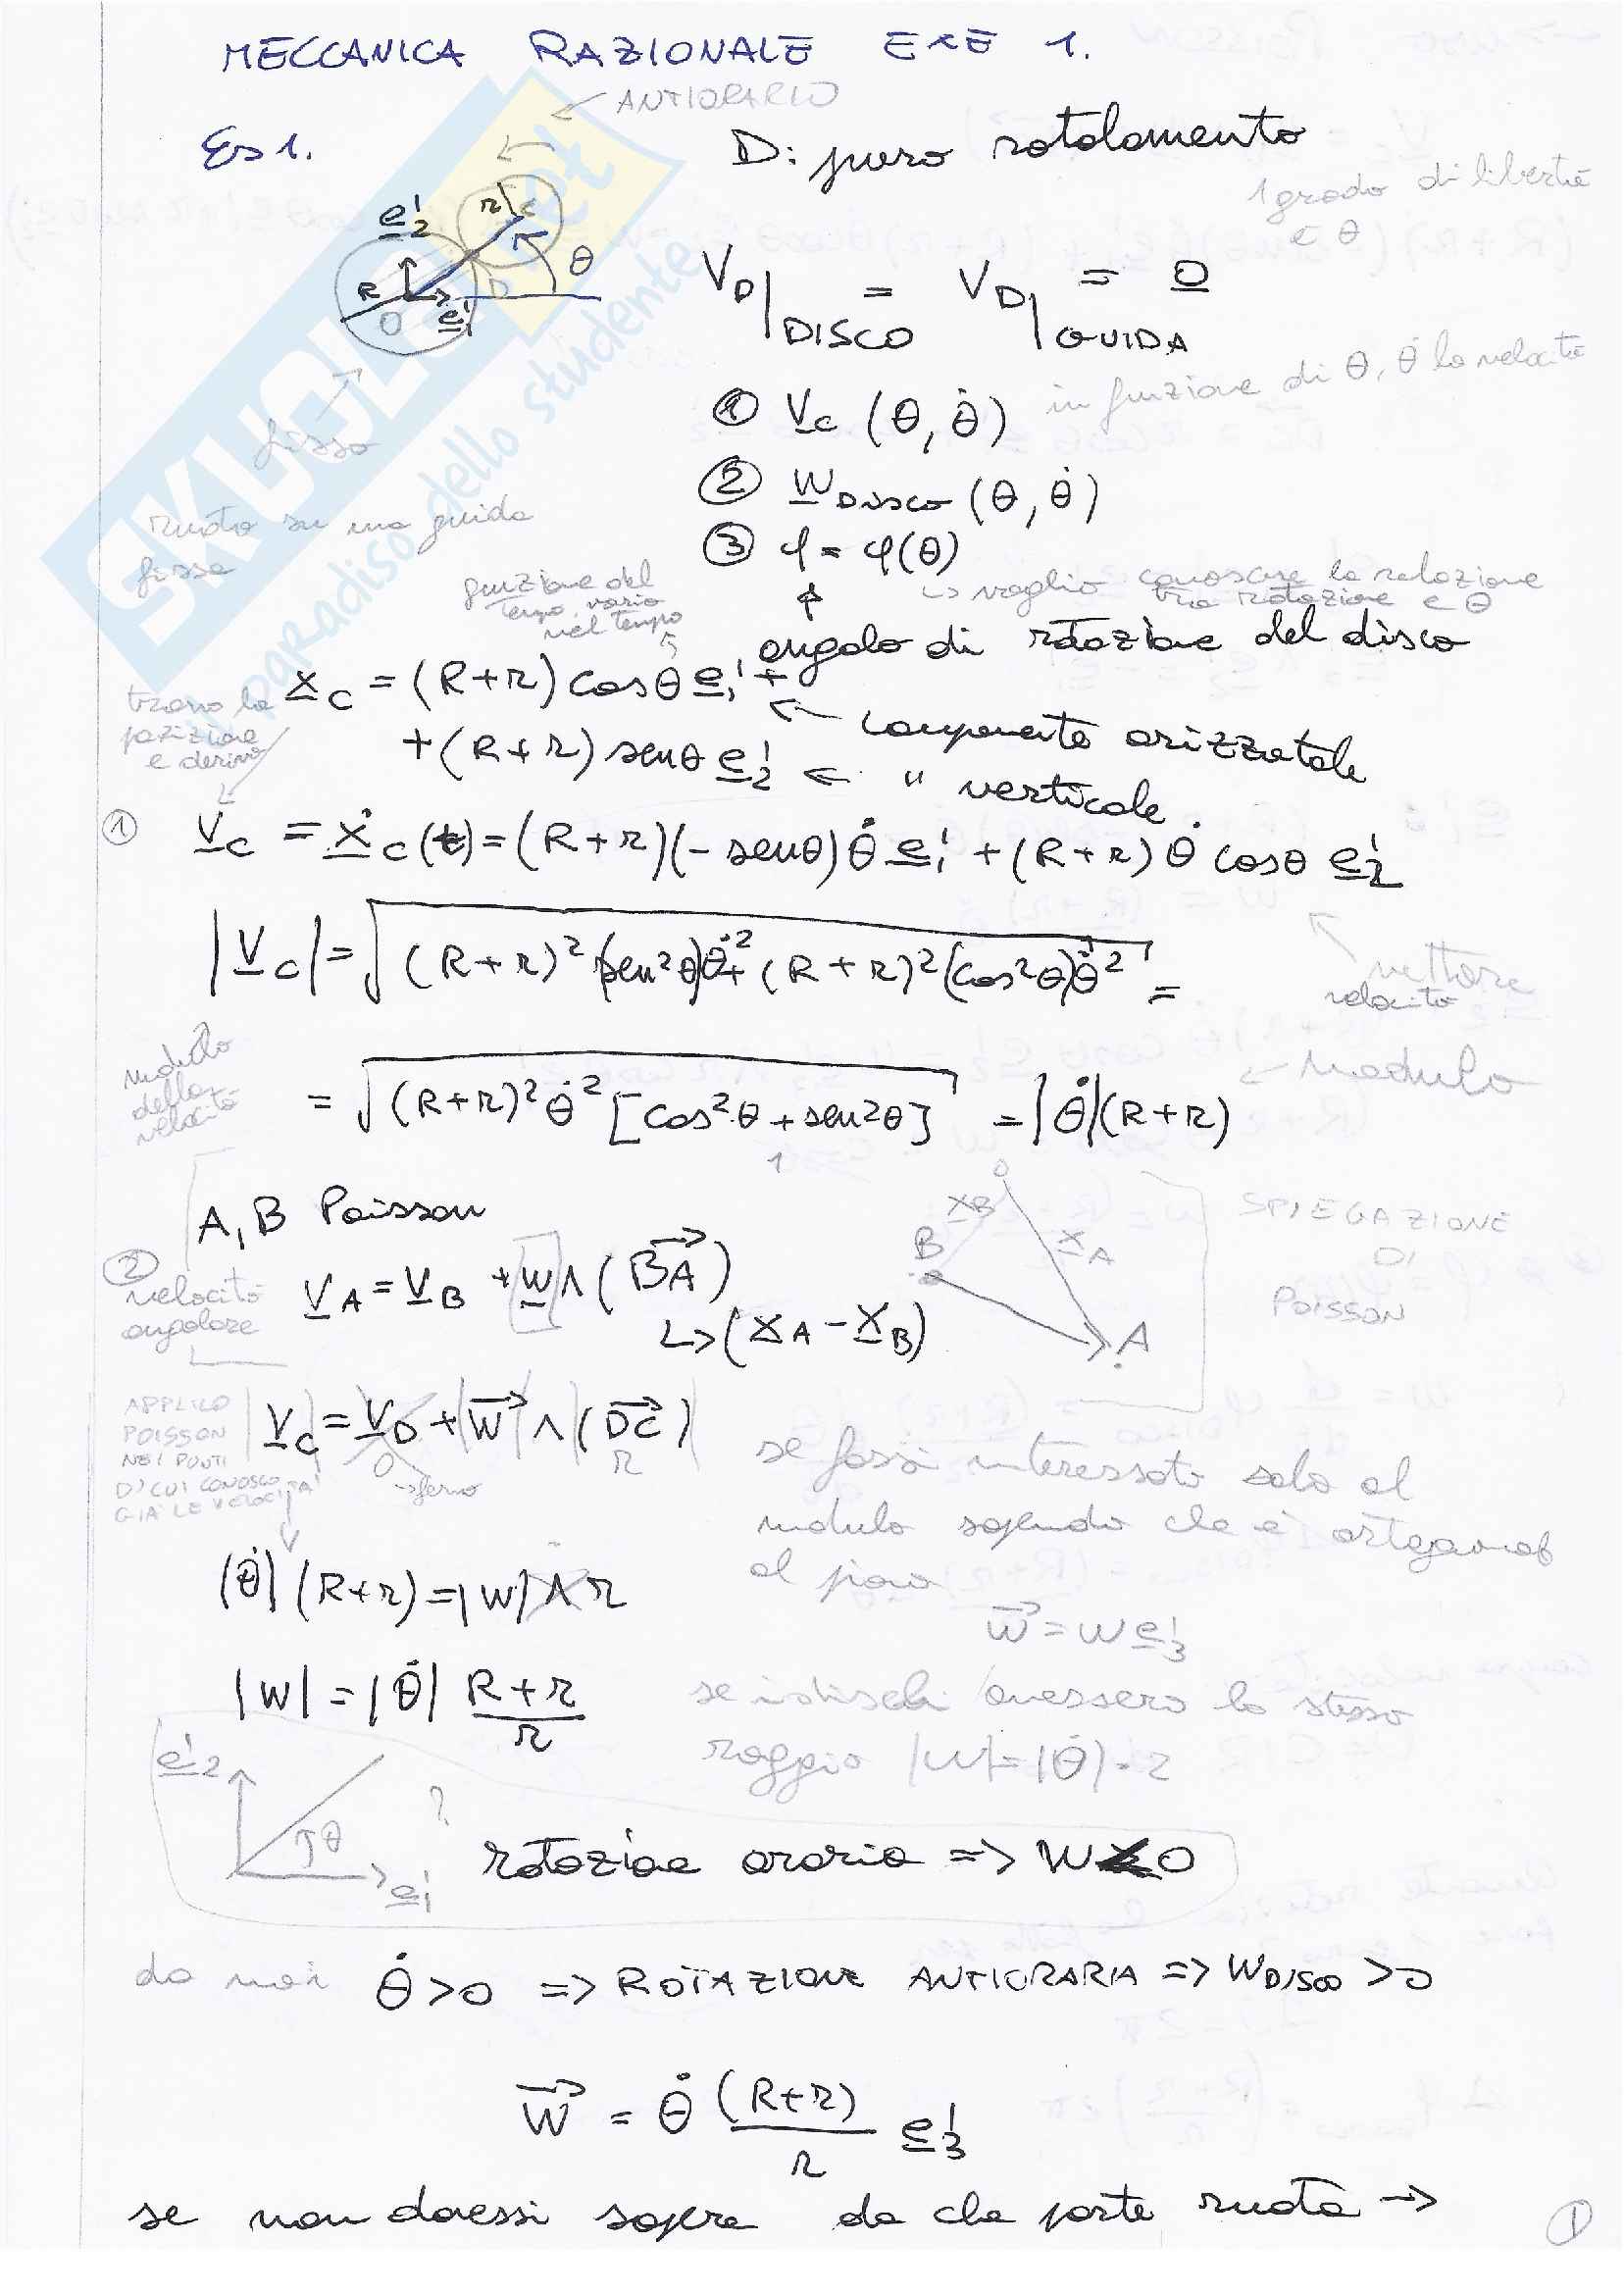 MECCANICA RAZIONALE ERE 1.
← ANTIORARIO
Es 1.
D: puro rotolamento
1 grado di libertà
è θ
e'2
r
C
θ
R
D
O
e'1
V_D|DISCO = V_D|GUIDA = 0
fisso
① V_C (θ, θ̇) in funzione di θ, θ̇ la velocità
② W_DISCO (θ, θ̇)
ruota su una guida
fissa
③ φ = φ(θ)
↳ voglio conoscere la relazione
tra rotazione e θ
angolo di rotazione del disco
funzione del
tempo, varia
nel tempo
trovo la
posizione
e derivo
x_C = (R+r) cosθ e'1 +
← componente orizzontale
+ (R+r) senθ e'2 ← " verticale
① V_C = ẋ_C(t) = (R+r)(-senθ) θ̇ e'1 + (R+r) θ̇ cosθ e'2
vettore
velocità
|V_C| = √((R+r)² (sen²θ) θ̇² + (R+r)² (cos²θ) θ̇²) =
modulo
della
velocità
= √((R+r)² θ̇² [cos²θ + sen²θ]) = |θ̇|(R+r)
1
← modulo
A, B Poisson
② velocità
angolare
V_A = V_B + W ∧ (BA→)
↳ (x_A - x_B)
O
x_B
x_A
B
A
SPIEGAZIONE
DI
POISSON
APPLICO
POISSON
NEI PUNTI
DI CUI CONOSCO
GIÀ LE VELOCITÀ
|V_C| = V_D + |W→| ∧ |(DC→)|
0
→ fermo
r
se fossi interessato solo al
modulo sapendo che è ortogonale
al piano
W→ = W e'3
|θ̇| (R+r) = |W| ∧ r
|W| = |θ̇| (R+r)/r
se i dischi avessero lo stesso
raggio |W| = |θ̇| · 2
e'2
θ
e'1
?
rotazione oraria => W < 0
da noi θ̇ > 0 => ROTAZIONE ANTIORARIA => W_DISCO > 0
W→ = θ̇ (R+r)/r e'3
se non dovessi sapere da che parte ruota →
①